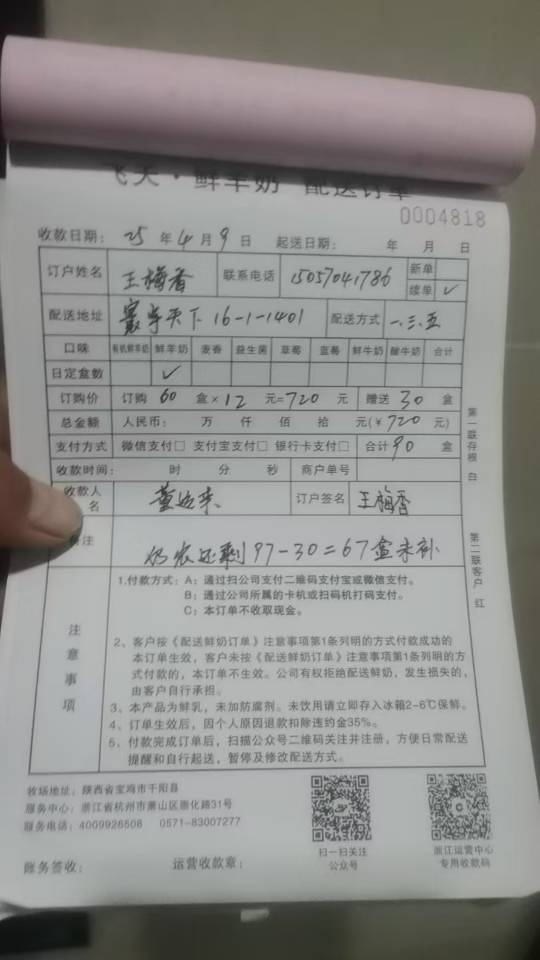 飞天·鲜羊奶 配送订单
0004818
收款日期: 25 年 4 月 9 日 起送日期: 年 月 日
订户姓名 王梅香 联系电话 15057041786 新单
续单 ✓
配送地址 天下 16-1-1401 配送方式 一.三.五
口味 有机鲜羊奶 鲜羊奶 麦香 益生菌 草莓 蓝莓 鲜牛奶 酸牛奶 合计
日定盒数 ✓
订购价 订购 60 盒×12 元=720 元 赠送 30 盒
总金额 人民币: 万 仟 佰 拾 元(¥720 元)
支付方式 微信支付□ 支付宝支付□ 银行卡支付□ 合计90 盒
收款时间: 时 分 秒 商户单号
收款人名 董 来 订户签名 王梅香
备注 奶农还剩 97-30=67盒未补
第一联存根 白
第二联客户 红
注意事项
1.付款方式: A: 通过扫公司支付二维码支付宝或微信支付。
B: 通过公司所属的卡机或扫码机打码支付。
C: 本订单不收取现金。
2、客户按《配送鲜奶订单》注意事项第1条列明的方式付款成功的
本订单生效，客户未按《配送鲜奶订单》注意事项第1条列明的方
式付款的，本订单不生效。公司有权拒绝配送鲜奶，发生损失的，
由客户自行承担。
3、本产品为鲜乳，未加防腐剂。未饮用请立即存入冰箱2-6℃保鲜。
4、订单生效后，因个人原因退款扣除违约金35%。
5、付款完成订单后，扫描公众号二维码关注并注册，方便日常配送
提醒和自行起送，暂停及修改配送方式。
牧场地址: 陕西省宝鸡市千阳县
服务中心: 浙江省杭州市萧山区崇化路31号
服务电话: 4009926508 0571-83007277
扫一扫关注
公众号
浙江运营中心
专用收款码
账务签收: 运营收款章: